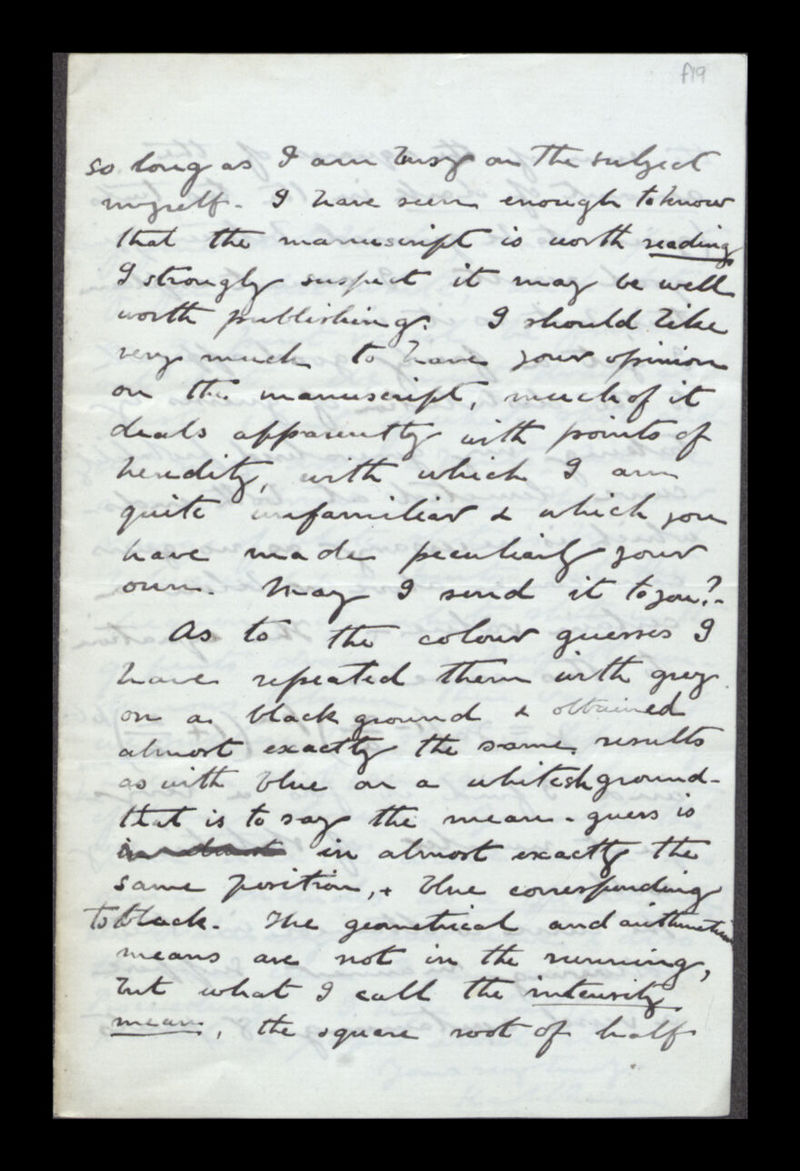 f19
so long as I am busy on the subject
myself. I have seen enough to know
that the manuscript is worth reading,
I strongly suspect it may be well
worth publishing. I should like
very much to have your opinion
on the manuscript, much of it
deals apparently with points of
heredity, with which I am
quite unfamiliar & which you
have made peculiarly your
own. May I send it to you?-
As to the colour guesses I
have repeated them with grey
on a black ground & obtained
almost exactly the same results
as with blue on a whitish ground-
that is to say the mean-guess is
in almost exactly the
same position, + blue corresponding
to black. The geometrical and arithmetical
means are not in the running,
but what I call the intensity
mean, the square root of half